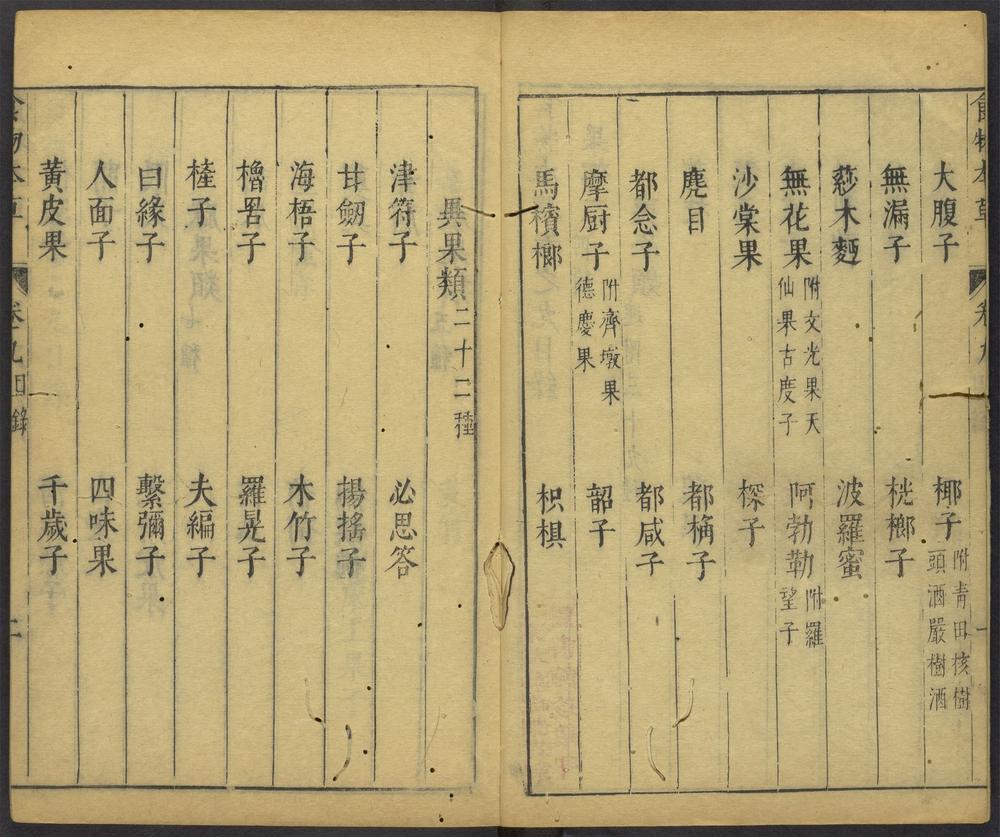 食物本草 卷九
大腹子 椰子 附青田核樹頭酒嚴樹酒
無漏子 桄榔子
莎木麪 波羅蜜
無花果 附文光果天仙果古度子 阿勃勒 附羅望子
沙棠果 棎子
麂目 都桷子
都念子 都咸子
摩厨子 附齊墩果德慶果 韶子
馬檳榔 枳椇
異果類二十二種
津符子 必思答
甘劒子 揚搖子
海梧子 木竹子
櫓罟子 羅晃子
㮔子 夫編子
曰緣子 繫彌子
人面子 四味果
黃皮果 千歲子
食物本草 卷九目錄 二